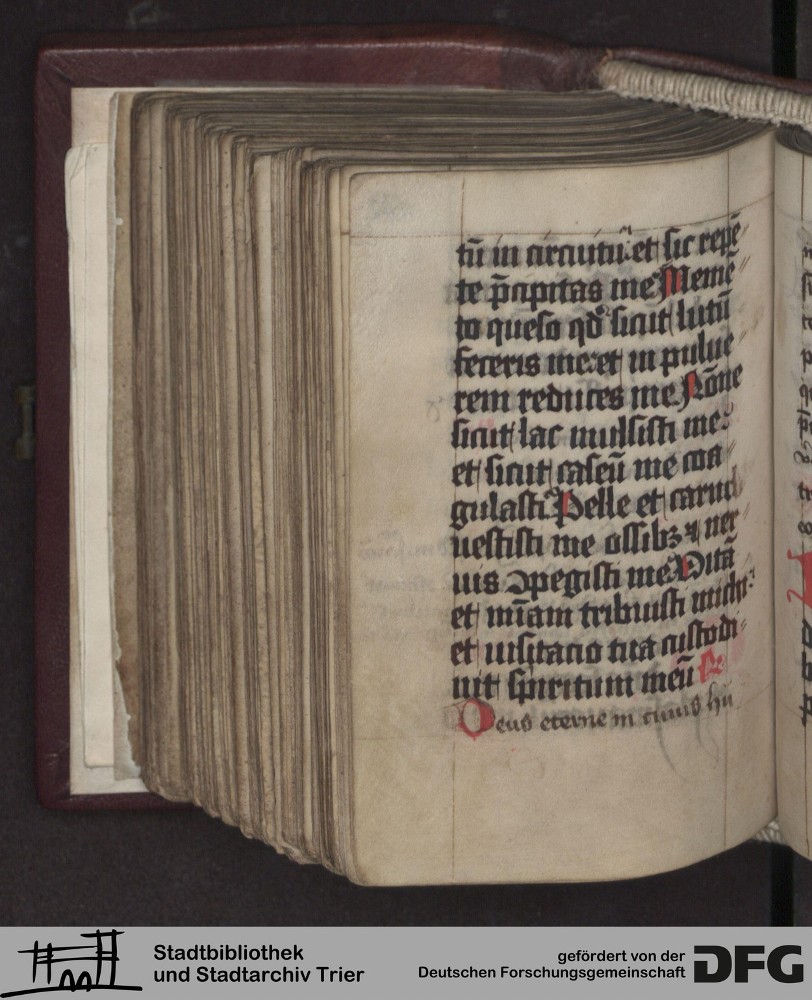 tū in circuitu: et sic repē
te p̄cipitas me Memē
to queso qd̛ sicut lutū
feceris me: et in pulue
rem reduces me Nōne
sicut lac mulsisti me:
et sicut caseū me coa
gulasti Pelle et carnib
uestisti me ossibꝫ ⁊ ner
uis ꝯpegisti me Vitā
et mīam tribuisti michi:
et uisitacio tua custodi
uit spiritum meū R
Deus eterne in cuius hu
Stadtbibliothek
und Stadtarchiv Trier
gefördert von der
Deutschen Forschungsgemeinschaft
DFG